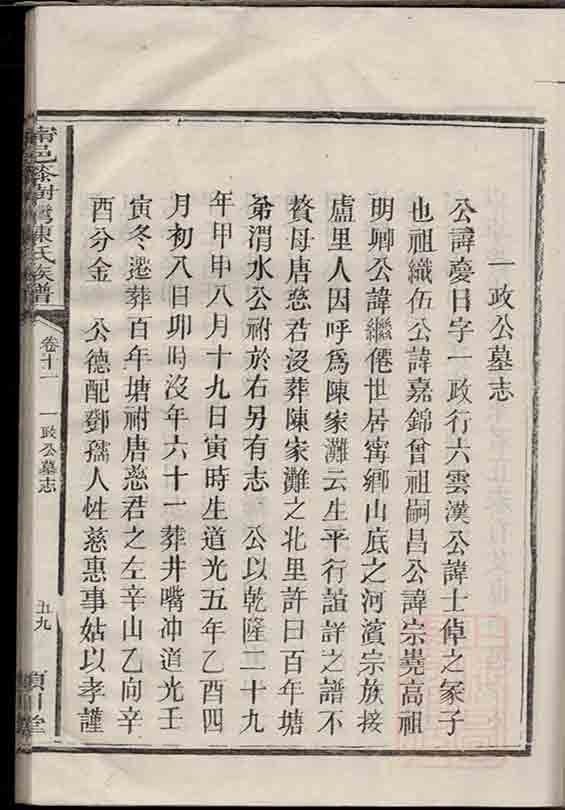 一政公墓志
公諱慶日字一政行六雲漢公諱士倬之冡子
也祖織伍公諱嘉錦曾祖嗣昌公諱宗堯高祖
明卿公諱繼僊世居甯鄉山底之河濱宗族接
廬里人因呼爲陳家灘云生平行誼詳之譜不
贅母唐慈君沒葬陳家灘之北里許曰百年塘
弟渭水公祔於右另有志 公以乾隆二十九
年甲申八月十九日寅時生道光五年乙酉四
月初八日卯時沒年六十一葬井嘴冲道光壬
寅冬遷葬百年塘祔唐慈君之左辛山乙向辛
酉分金 公德配鄧孺人性慈惠事姑以孝謹
甯邑 樹灣陳氏族譜
卷十一
一政公墓志
五九
潁川堂